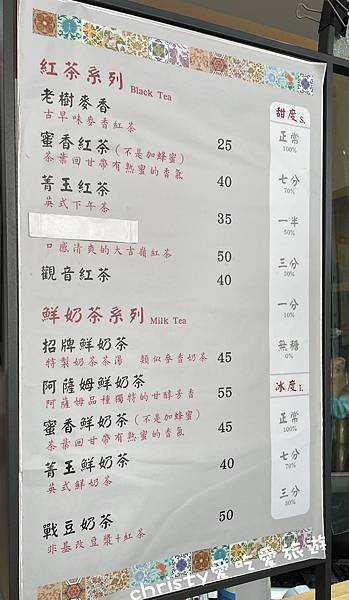 紅茶系列 Black Tea
老樹麥香 25
古早味麥香紅茶
蜜香紅茶(不是加蜂蜜) 40
茶葉回甘帶有熟蜜的香氣
菁玉紅茶 35
英式下午茶
50
口感清爽的大吉嶺紅茶
觀音紅茶 40
鮮奶茶系列 Milk Tea
招牌鮮奶茶 45
特製奶茶茶湯 類似麥香奶茶
阿薩姆鮮奶茶 55
阿薩姆品種獨特的甘醇芳香
蜜香鮮奶茶(不是加蜂蜜) 45
茶葉回甘帶有熟蜜的香氣
菁玉鮮奶茶 40
英式鮮奶茶
戰豆奶茶 50
非基改豆漿+紅茶
甜度 S.
正常
100%
七分
70%
一半
50%
三分
30%
一分
10%
無糖
0%
冰度 I.
正常
100%
七分
70%
三分
30%
christy愛吃愛旅遊